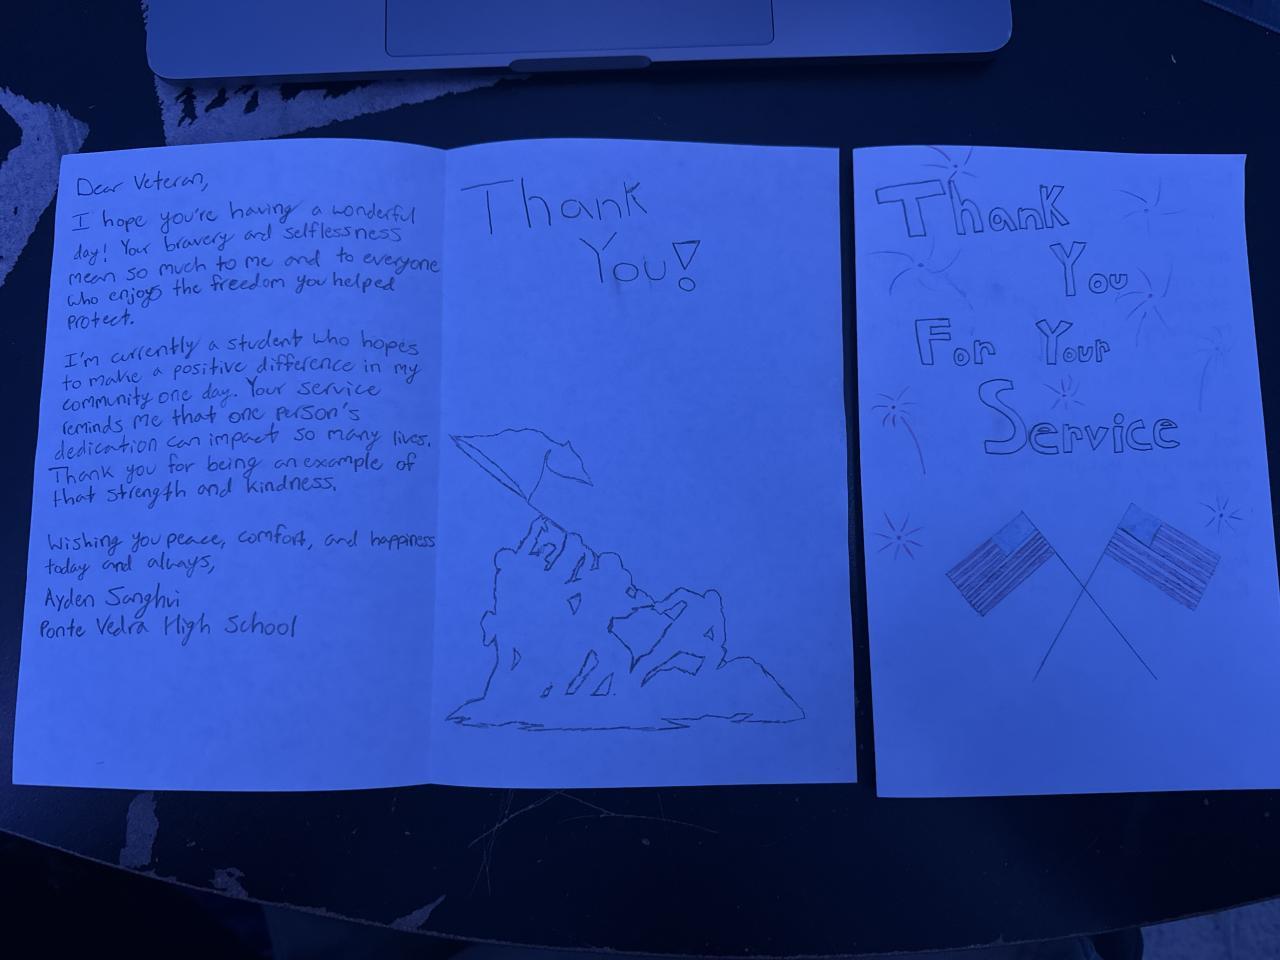 Dear Veteran,
I hope you're having a wonderful
day! Your bravery and selflessness
mean so much to me and to everyone
who enjoys the freedom you helped
protect.
I'm currently a student who hopes
to make a positive difference in my
community one day. Your service
reminds me that one person's
dedication can impact so many lives.
Thank you for being an example of
that strength and kindness.
Wishing you peace, comfort, and happiness
today and always,
Ayden Sanghvi
Ponte Vedra High School
Thank
You!
Thank
You
For Your
Service